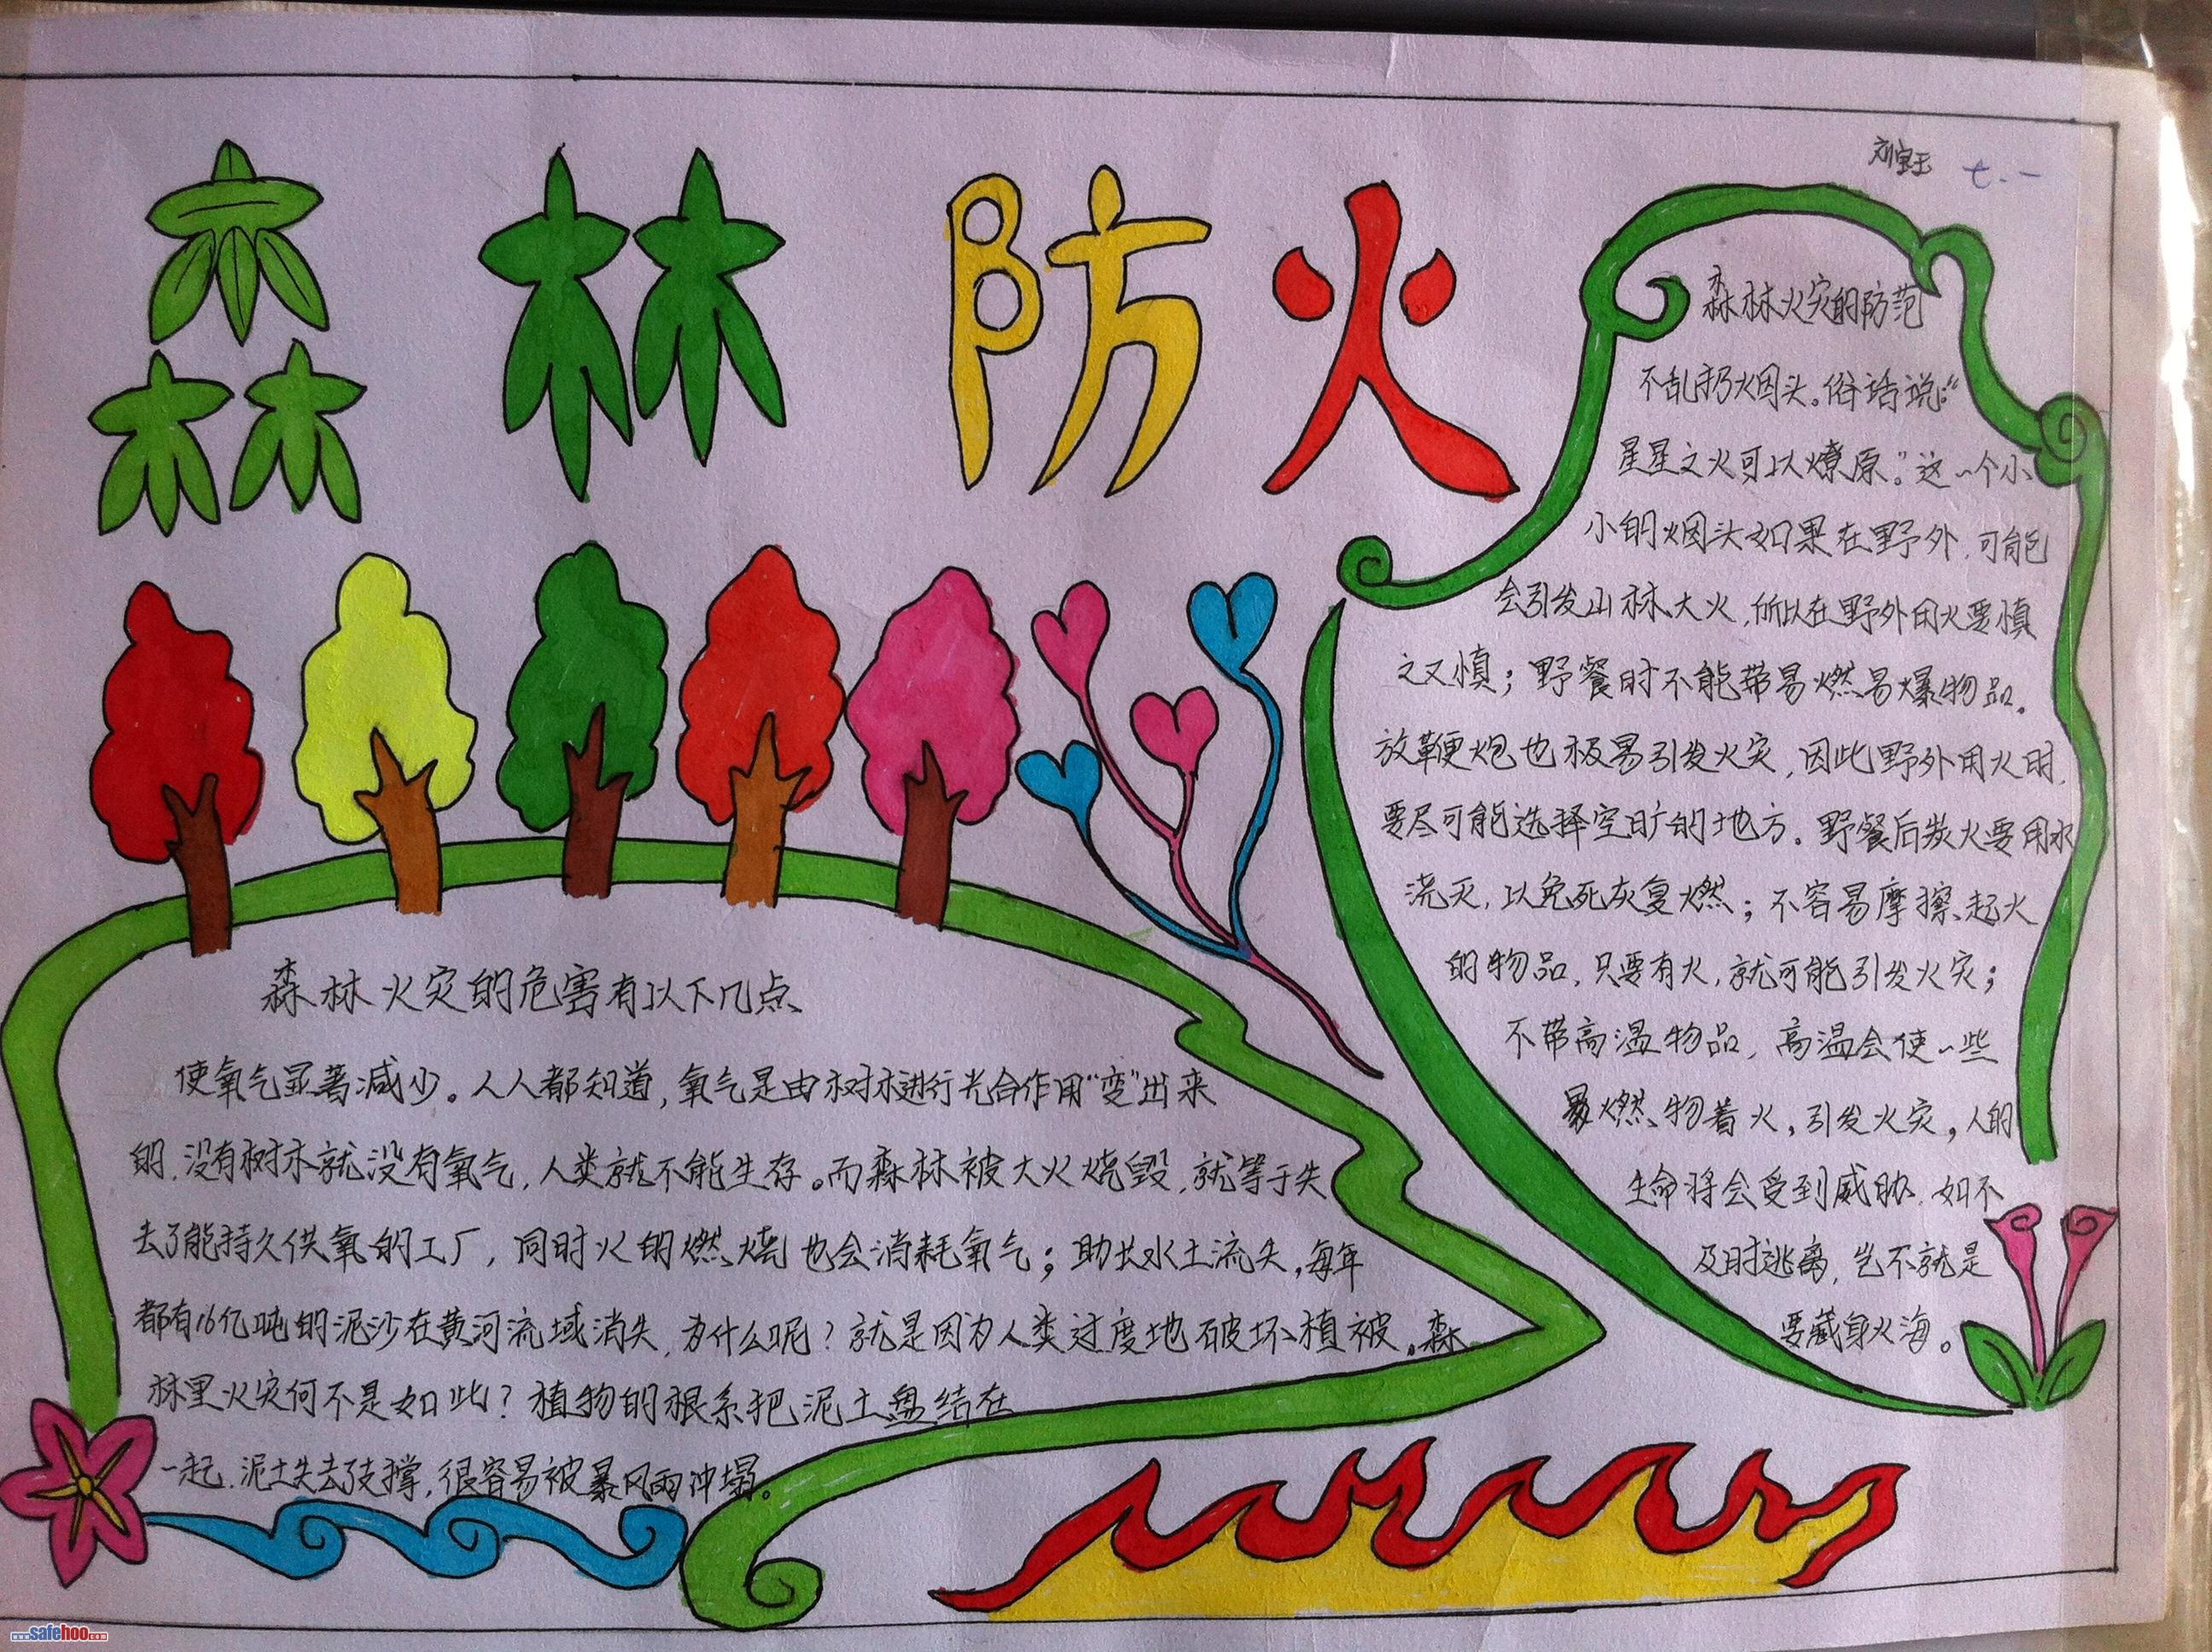 森林防火
刘宝玉 七.一
森林火灾的防范
不乱扔火因头。俗话说:“
星星之火可以燎原。”这一个小
小的烟头如果在野外,可能
会引发山林大火,所以在野外用火要慎
之又慎;野餐时不能带易燃易爆物品。
放鞭炮也极易引发火灾,因此野外用火时,
要尽可能选择空旷的地方。野餐后炭火要用水
浇灭,以免死灰复燃;不容易摩擦起火
的物品,只要有火,就可能引发火灾;
不带高温物品,高温会使一些
易燃物着火,引发火灾,人的
生命将会受到威胁,如不
及时逃离,岂不就是
要葬身火海。
森林火灾的危害有以下几点
使氧气显著减少。人人都知道,氧气是由树木进行光合作用“变”出来
的,没有树木就没有氧气,人类就不能生存。而森林被大火烧毁,就等于失
去了能持久供氧的工厂,同时火的燃烧也会消耗氧气;助长水土流失,每年
都有16亿吨的泥沙在黄河流域消失,为什么呢?就是因为人类过度地破坏植被。森
林里火灾何不是如此?植物的根系把泥土盘结在
一起,泥土失去了支撑,很容易被暴风雨冲塌。
...safehoo.com